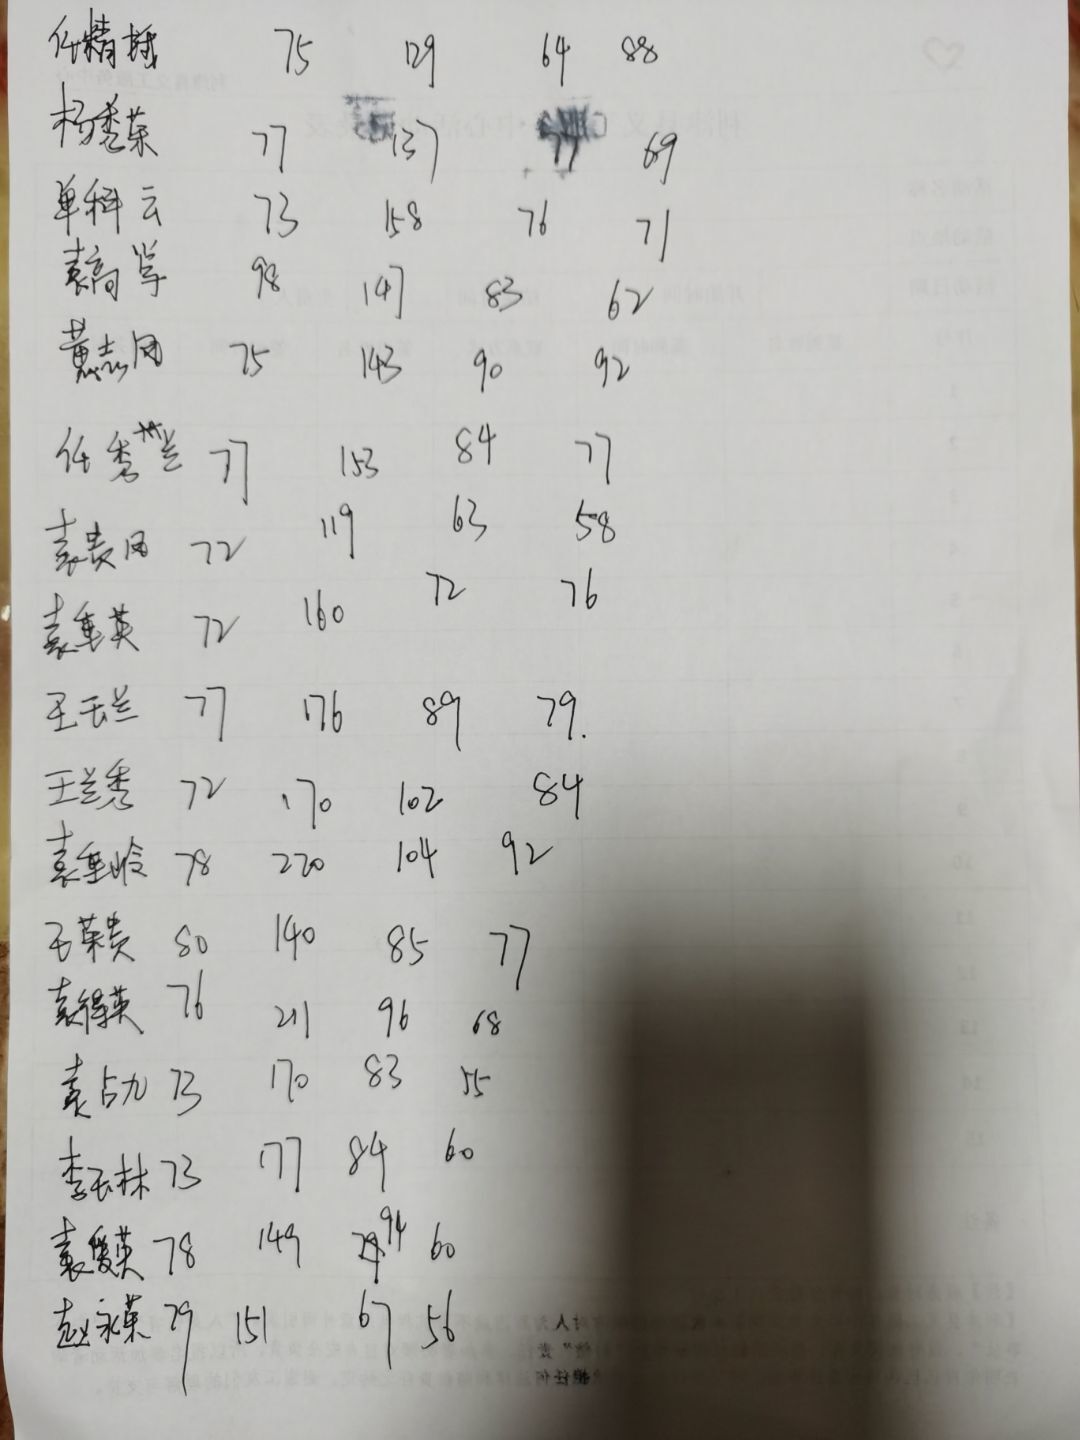 任精 75 129 64 88
杨秀荣 77 137 77 69
单科云 73 158 76 71
袁高学 98 147 83 62
黄志凤 75 143 90 92
任秀兰 77 153 84 77
袁贵凤 72 119 63 58
袁重英 72 160 72 76
王玉兰 77 176 89 79.
王兰秀 72 170 102 84
袁重岭 78 220 104 92
王荣贵 80 140 85 77
袁得英 76 211 96 68
袁占九 73 170 83 55
李玉林 73 177 84 60
袁爱英 78 149 94 60
赵永荣 79 151 67 56